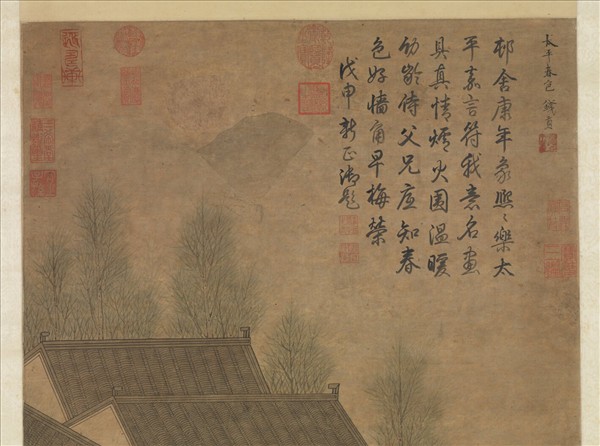 平春色 錢貢
邨舍康年象熙〻樂太
平嘉言符我意名畫
具真情爐火圍溫暖
幼齡侍父兄應知春
色好墻角早梅榮
戊申新正御題